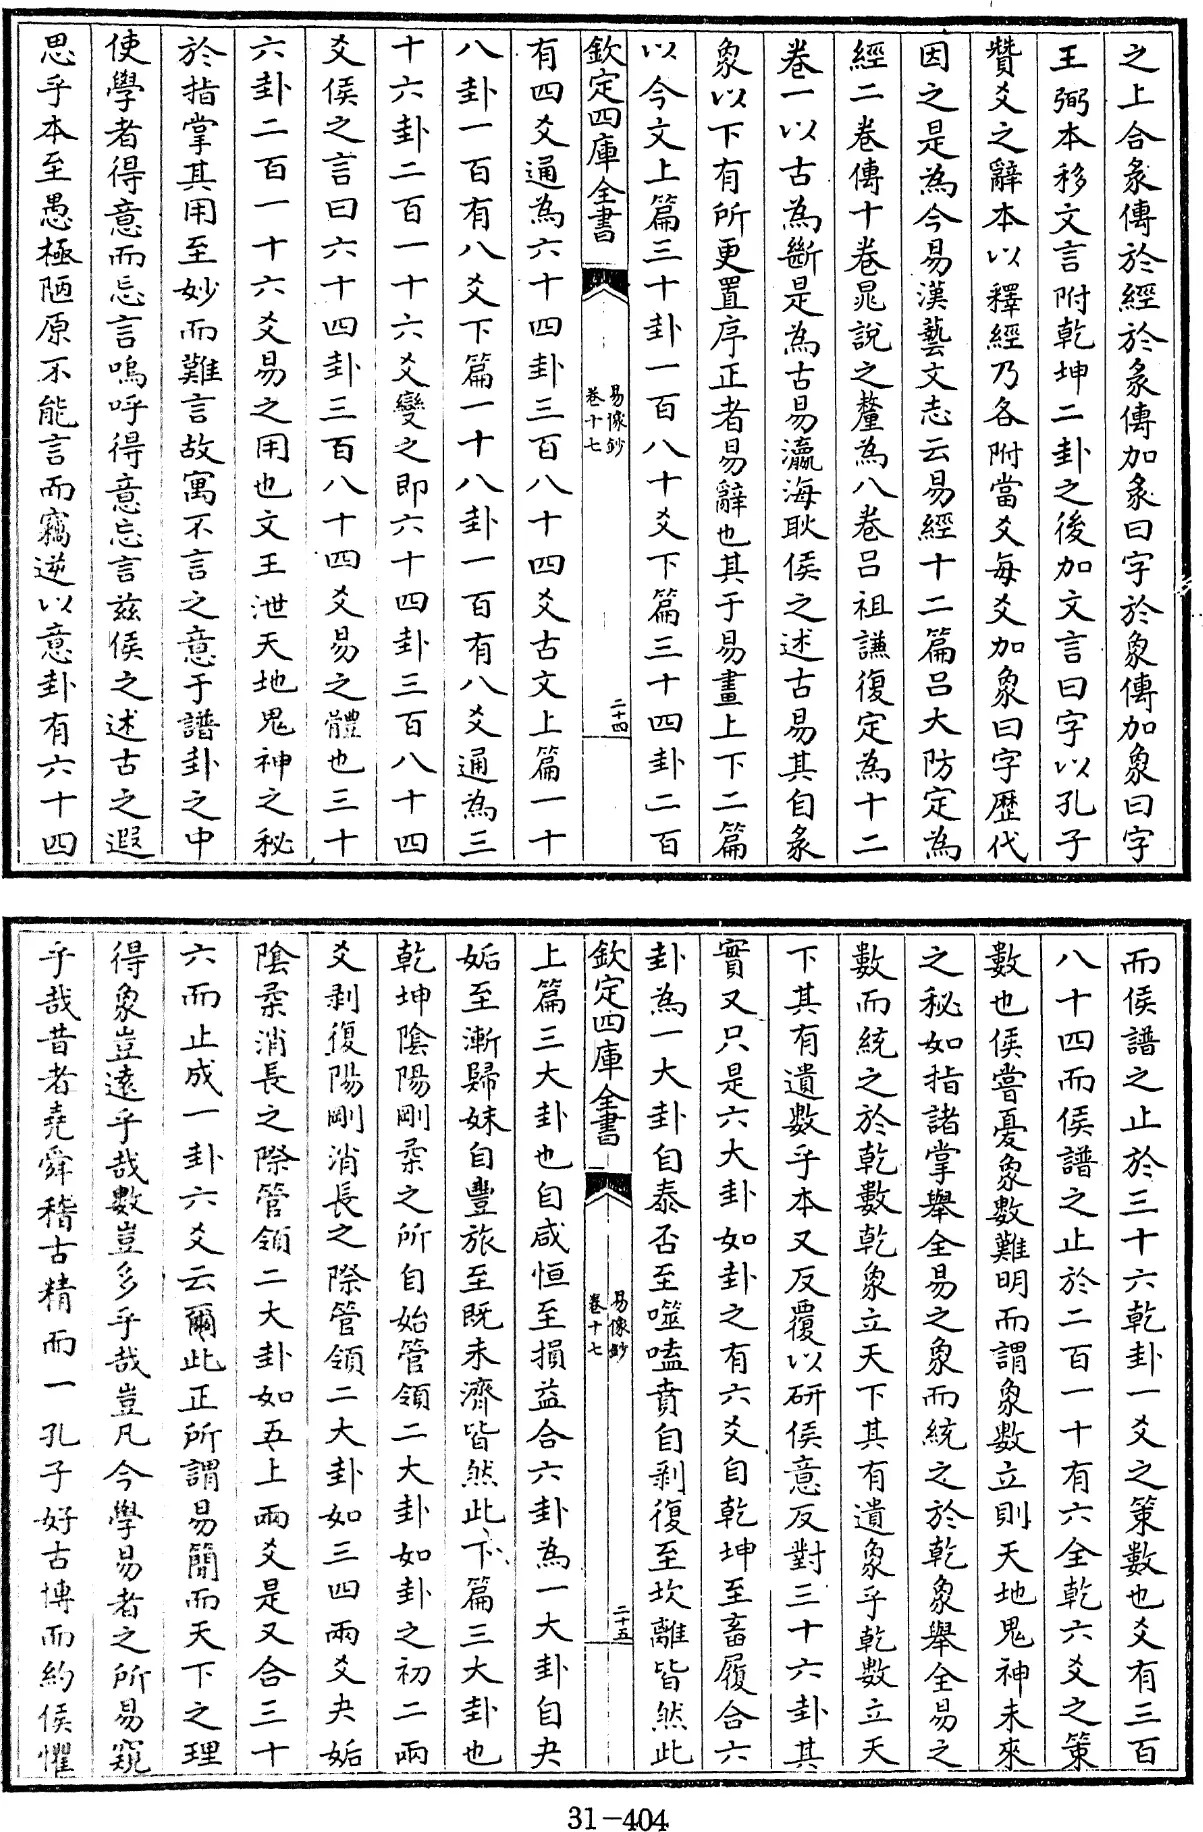 之上合彖傳於經於彖傳加彖曰字於象傳加象曰字
王弼本移文言附乾坤二卦之後加文言曰字以孔子
贊爻之辭本以釋經乃各附當爻每爻加象曰字歷代
因之是為今易漢藝文志云易經十二篇呂大防定為
經二卷傳十卷晁說之釐為八卷呂祖謙復定為十二
卷一以古為斷是為古易瀛海耿侯之述古易其自彖
象以下有所更置序正者易辭也其于易畫上下二篇
以今文上篇三十卦一百八十爻下篇三十四卦二百
欽定四庫全書
易像鈔
卷十七
二十四
有四爻通為六十四卦三百八十四爻古文上篇一十
八卦一百有八爻下篇一十八卦一百有八爻通為三
十六卦二百一十六爻變之即六十四卦三百八十四
爻侯之言曰六十四卦三百八十四爻易之體也三十
六卦二百一十六爻易之用也文王泄天地鬼神之秘
於指掌其用至妙而難言故寓不言之意于譜卦之中
使學者得意而忘言嗚呼得意忘言茲侯之述古之遐
思乎本至愚極陋原不能言而竊逆以意卦有六十四
而侯譜之止於三十六乾卦一爻之策數也爻有三百
八十四而侯譜之止於二百一十有六全乾六爻之策
數也侯嘗憂象數難明而謂象數立則天地鬼神未來
之秘如指諸掌舉全易之象而統之於乾象舉全易之
數而統之於乾數乾象立天下其有遺象乎乾數立天
下其有遺數乎本又反覆以研侯意反對三十六卦其
實又只是六大卦如卦之有六爻自乾坤至畜履合六
卦為一大卦自泰否至噬嗑賁自剝復至坎離皆然此
欽定四庫全書
易像鈔
卷十七
二十五
上篇三大卦也自咸恒至損益合六卦為一大卦自夬
姤至漸歸妹自豐旅至既未濟皆然此下篇三大卦也
乾坤陰陽剛柔之所自始管領二大卦如卦之初二兩
爻剥復陽剛消長之際管領二大卦如三四兩爻夬姤
陰柔消長之際管領二大卦如五上兩爻是又合三十
六而止成一卦六爻云爾此正所謂易簡而天下之理
得象豈遠乎哉數豈多乎哉豈凡今學易者之所易窺
乎哉昔者堯舜稽古精而一孔子好古博而約侯懼
31-404